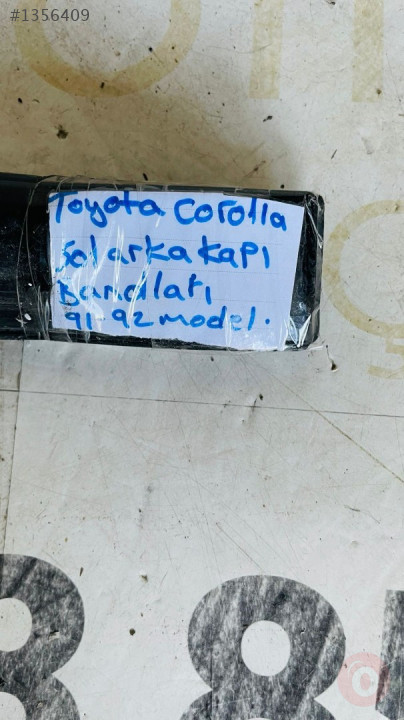 #1356409
Toyota Corolla
Sol arka kapı
Bandları
91-92 model.
88